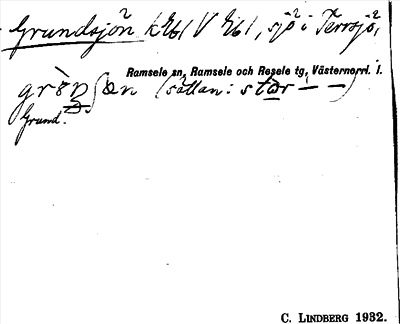 Grundsjön² k V , sjö i Terrsjö,²
Ramsele sn, Ramsele och Resele tg, Västernorrl. l.
grònʃøn (sällan: stor — —)
Grund.
C. LINDBERG 1932.